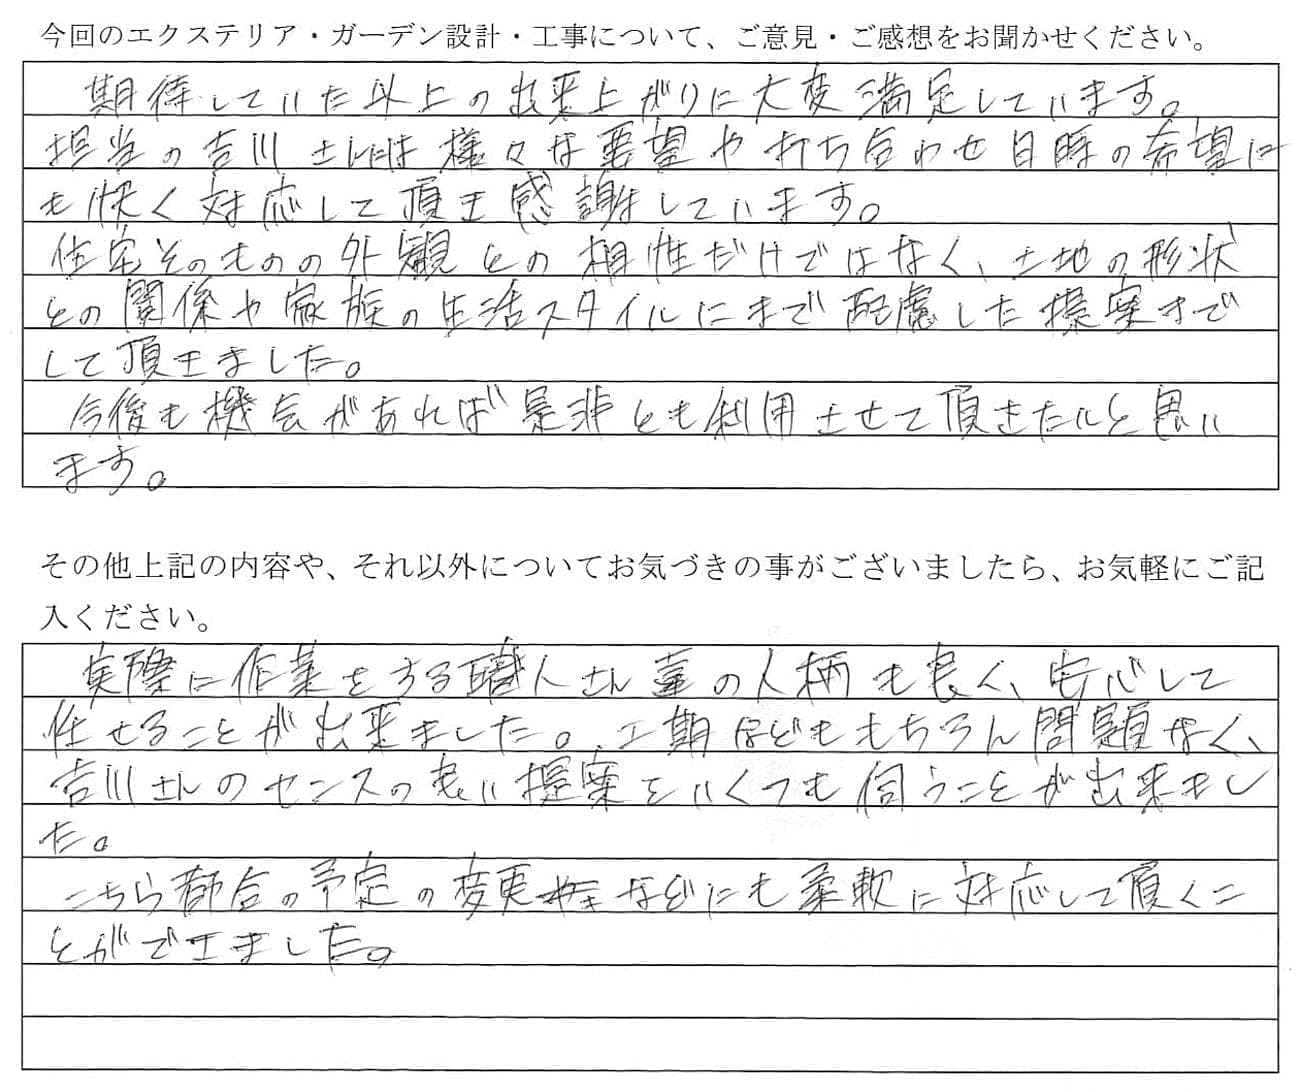 今回のエクステリア・ガーデン設計・工事について、ご意見・ご感想をお聞かせください。
期待していた以上の出来上がりに大変満足しています。
担当の吉川さんには様々な要望や打ち合わせ日時の希望に
も快く対応して頂き感謝しています。
住宅そのものの外観との相性だけではなく、土地の形状
との関係や家族の生活スタイルにまで配慮した提案まで
して頂きました。
今後も機会があれば是非とも利用させて頂きたいと思い
ます。
その他上記の内容や、それ以外についてお気づきの事がございましたら、お気軽にご記
入ください。
実際に作業をする職人さん達の人柄も良く、安心して
任せることが出来ました。工期などももちろん問題なく、
吉川さんのセンスの良い提案をいくつも伺うことが出来まし
た。
こちら都合の予定の変更などにも柔軟に対応して頂くこ
とができました。